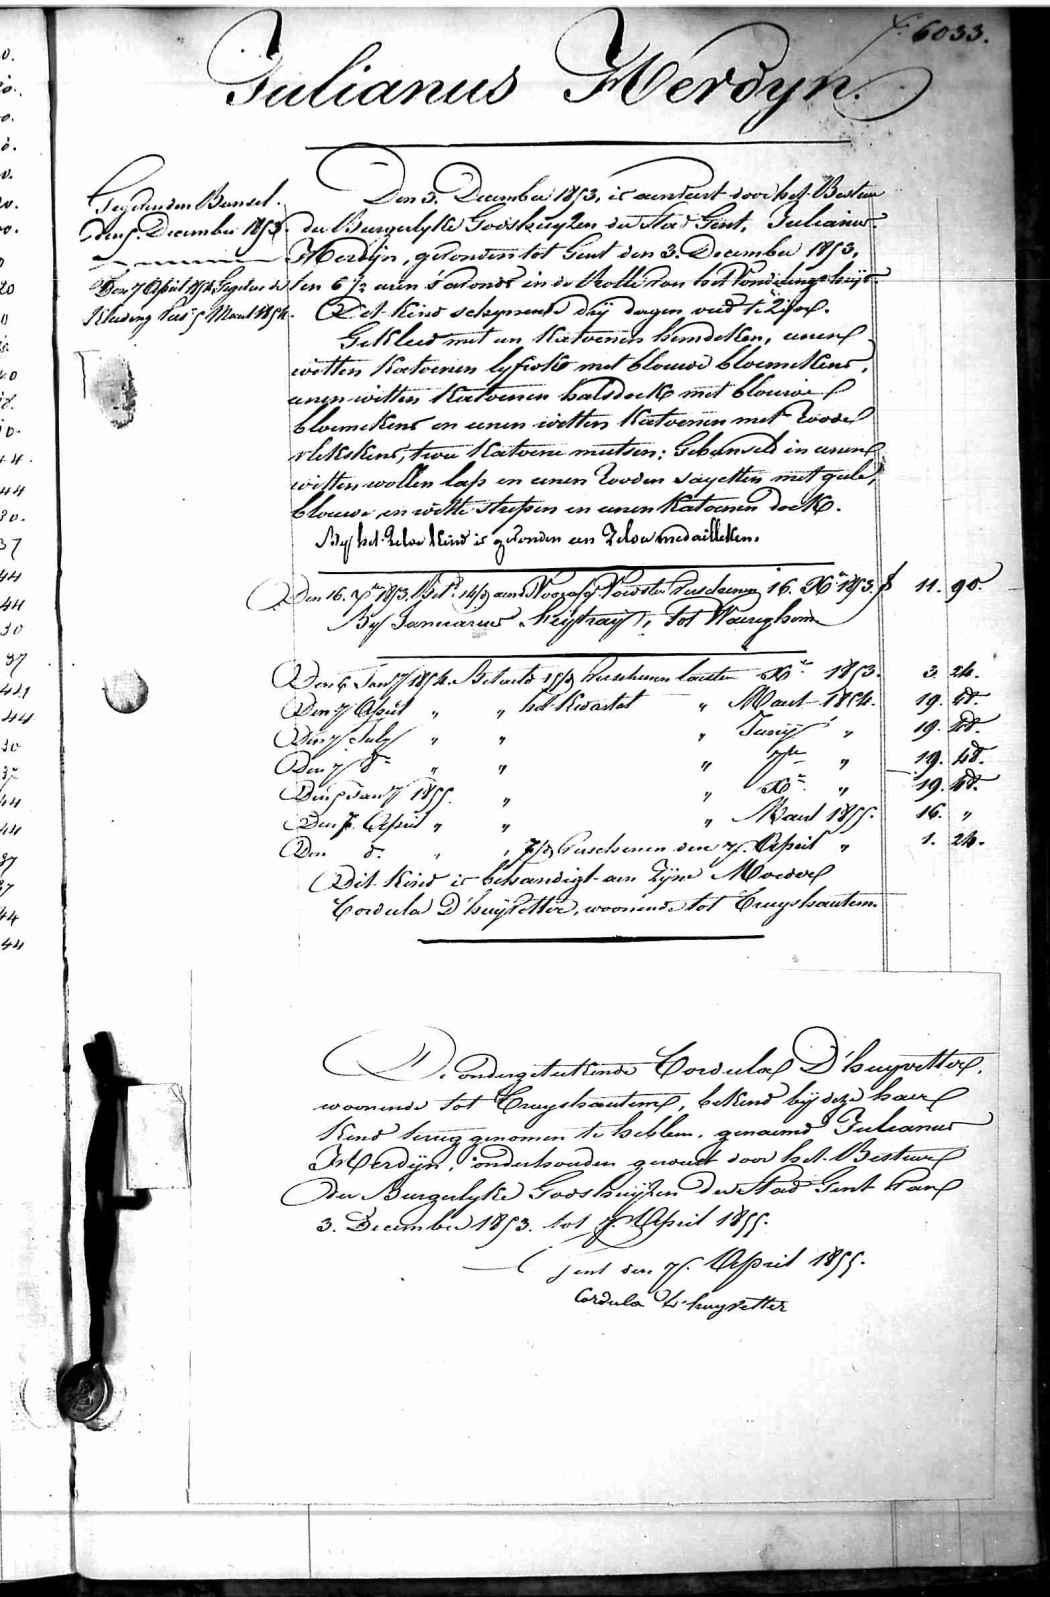 f. 6033.
Julianus Herdyn.
Gegeven den Bunsel.
den 5. December 1853.
Den 7 April 1854. Gegeven de
Kleeding vers. 5 Maart 1854.
Den 3. December 1853, is aenveert door het Bestuer
der Burgerlyke Godshuyzen der Stad Gent, Julianus
Herdijn, gevonden tot Gent den 3. December 1853,
ten 6 1/2 uren s'avonds in de Rolle van het Vondelingshuys.
Dit kind schynende dry dagen oud te zyn.
Gekleed met een Katoenen hemdeken, eenen
witten Katoenen lyfrok met blouwe bloemekens,
eenen witten Katoenen halsdoek met blouwe
bloemekens en eenen witten Katoenen met roode
vlekskens, twee Katoene mutsen; Gebunseld in eenen
witten wollen lap en eenen rooden sayetten met geele,
blouwe en witte streepen en eenen Katoenen doek.
By het zelve kind is gevonden een zelver medailleken.
Den 16. Xber 1853. Bet. aen Voorafg. Voedster verschenen 16. Xber 1853. f 11. 90.
By Januarius tot Waereghem
Den 5 Janry 1854. Betaeld verschenen laesten Xber 1853. 3. 24.
Den 7 April " " het Kwartael " Maert 1854. 19. 48.
Den 7 July " " " Junij " 19. 48.
Den 7 8ber " " " 7ber " 19. 48.
Den 5 Janry 1855. " " Xber " 19. 48.
Den 7. April " " " Maert 1855. 16. "
Den d°. " " verschenen den 7. April " 1. 24.
Dit Kind is behandigt aen zyne Moeder
Cordula D'huyvetter, woonende tot Cruyshautem.
De ondergeteekende Cordula D'huyvetter,
woonende tot Cruyshautem, bekend bij deze haer
kind terug genomen te hebben, genaemd Julianus
Herdijn, onderhouden geweest door het Bestuer
der Burgerlyke Godshuyzen der Stad Gent van
3. December 1853. tot 7. April 1855.
Gent den 7. April 1855.
Cordula D'huyvetter